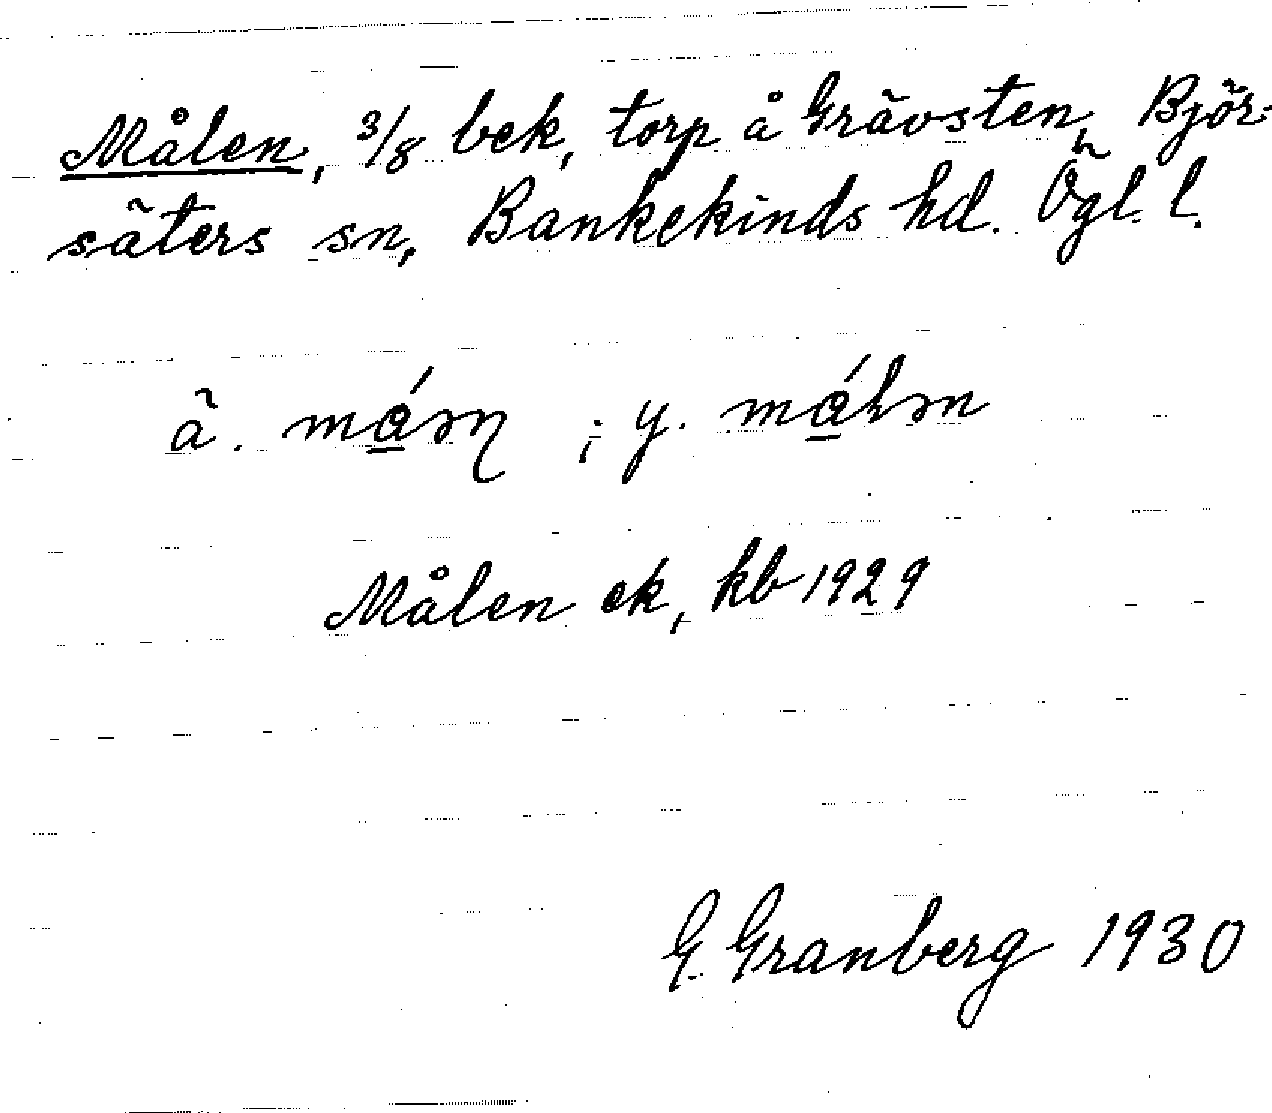 Målen, 3/8 bek, torp å Grävsten, Björ-
säters sn, Bankekinds hd. Ögl. l.
ä. ; y.
Målen ek, kb 1929
G. Granberg 1930